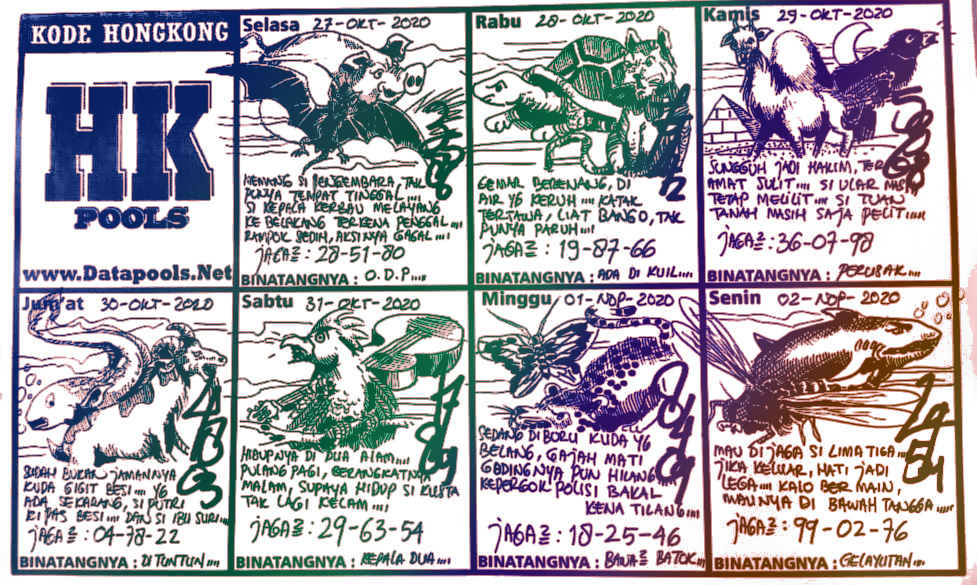 KODE HONGKONG
HK
POOLS
www.Datapools.Net
Selasa 27-OKT-2020
MEMANG SI PENGEMBARA, TAK
PUNYA TEMPAT TINGGAL....
SI KEPALA KERBAU MELAYANG
KE BELAKANG TERKENA PENGGAL....
RAMPOK SEDIH, AKSINYA GAGAL....
JAGA2 : 28-51-80
BINATANGNYA : O.D.P....
Rabu 28-OKT-2020
GEMAR BERENANG, DI
AIR YG KERUH.... KATAK
TERTAWA, LIAT BANGO, TAK
PUNYA PARUH....
JAGA2 : 19-87-66
BINATANGNYA : ADA DI KUIL....
Kamis 29-OKT-2020
SUNGGUH JADI HAKIM, TER
AMAT SULIT.... SI ULAR MASIH
TETAP MELILIT.... SI TUAN
TANAH MASIH SAJA PELIT....
JAGA2 : 36-07-98
BINATANGNYA : PERUSAK....
Jum'at 30-OKT-2020
SUDAH BUKAN JAMANNYA
KUDA GIGIT BESI.... YG
ADA SEKARANG, SI PUTRI
KIPAS BESI.... DAN SI IBU SURI....
JAGA2 : 04-78-22
BINATANGNYA : DI TUNTUN....
Sabtu 31-OKT-2020
HIDUPNYA DI DUA ALAM....
PULANG PAGI, BERANGKATNYA
MALAM, SUPAYA HIDUP SI KUSTA
TAK LAGI KELAM....
JAGA2 : 29-63-54
BINATANGNYA : KEPALA DUA....
Minggu 01-NOP-2020
SEDANG DIBURU KUDA YG
BELANG, GAJAH MATI
GADINGNYA PUN HILANG
KEPERGOK POLISI BAKAL
KENA TILANG....
JAGA2 : 18-25-46
BINATANGNYA : BAWA2 BATOK....
Senin 02-NOP-2020
MAU DI JAGA SI LIMA TIGA....
JIKA KELUAR, HATI JADI
LEGA.... KALO BER MAIN,
MAUNYA DI BAWAH TANGGA....
JAGA2 : 99-02-76
BINATANGNYA : GELAYUTAN....